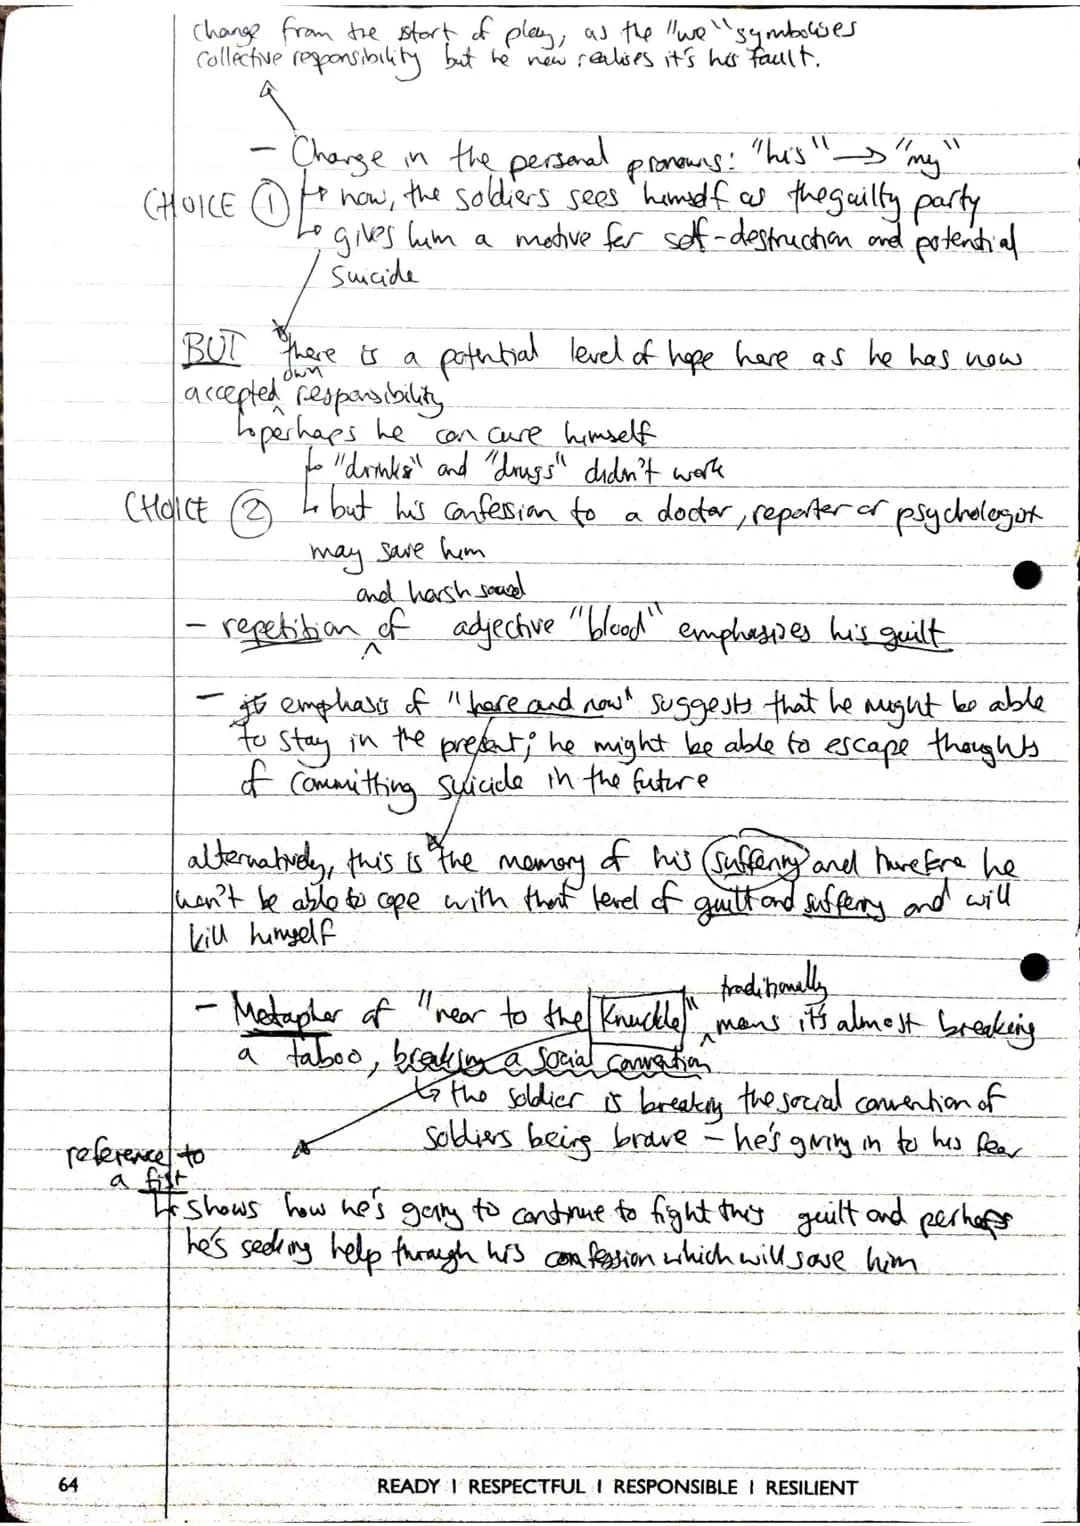 Change from the start of play, as the "we" symbolises
collective responsibility but he now realises it's his fault.
- Change in the personal pronouns: "his" → "my"
CHOICE ① ↳ now, the soldiers sees himself as the guilty party
↳ gives him a motive for self-destruction and potential
suicide
BUT there is a potential level of hope here as he has now
own
accepted ^ responsibility
↳ perhaps he can cure himself
↳ "drinks" and "drugs" didn't work
CHOICE ② ↳ but his confession to a doctor, reporter or psychologist
may save him
and harsh sound
- repetition of ^ adjective "blood" emphasizes his guilt
- emphasis of "here and now" suggests that he might be able
to stay in the present; he might be able to escape thoughts
of committing suicide in the future
alternatively, this is the memory of his suffering and therefore he
won't be able to cope with that level of guilt and suffering and will
kill himself
traditionally
- Metaphor of "near to the knuckle" ^ means it's almost breaking
a taboo, breaking a social convention
↳ the soldier is breaking the social convention of
soldiers being brave – he's giving in to his fear
reference to
a fist
↳ shows how he's going to continue to fight this guilt and perhaps
he's seeking help through his confession which will save him
64 READY | RESPECTFUL | RESPONSIBLE | RESILIENT